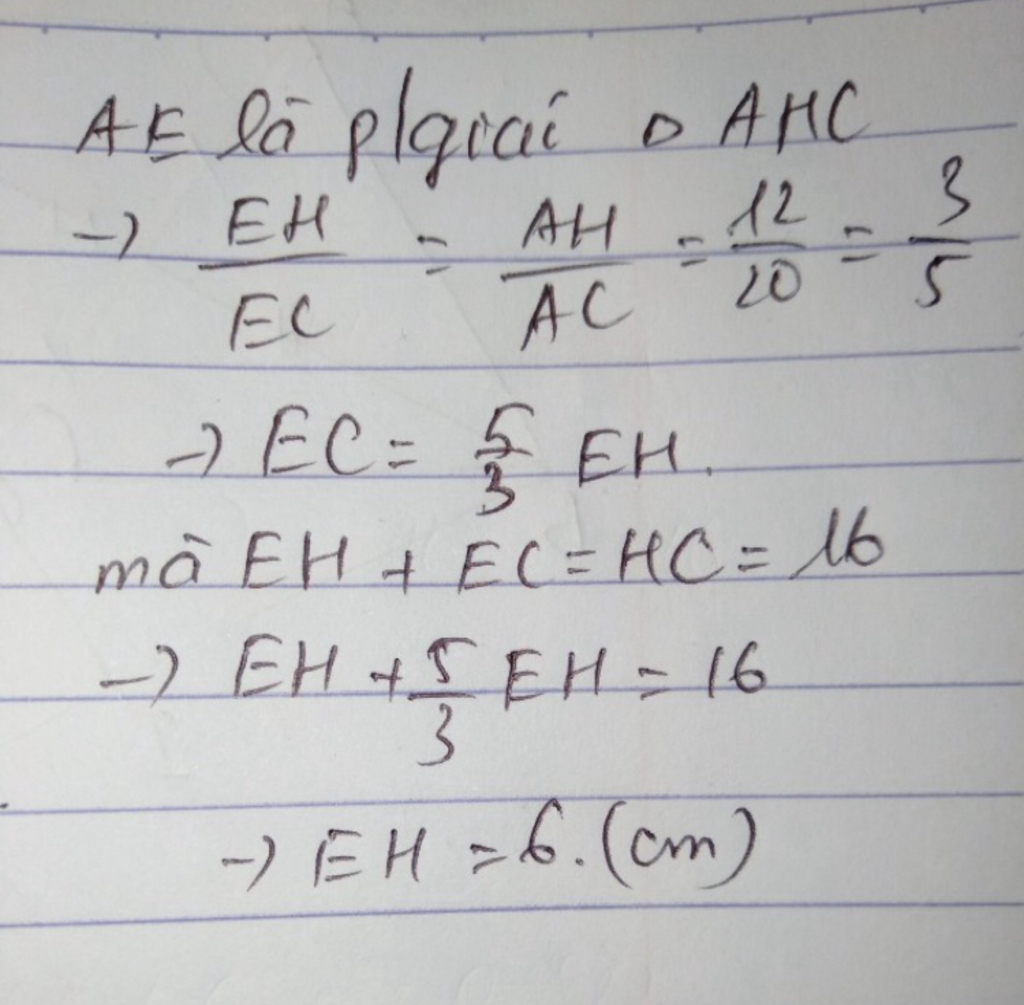 AE là p/giái △ AHC
→ EH/EC = AH/AC = 12/20 = 3/5
→ EC = 5/3 EH.
mà EH + EC = HC = 16
→ EH + 5/3 EH = 16
→ EH = 6. (cm)